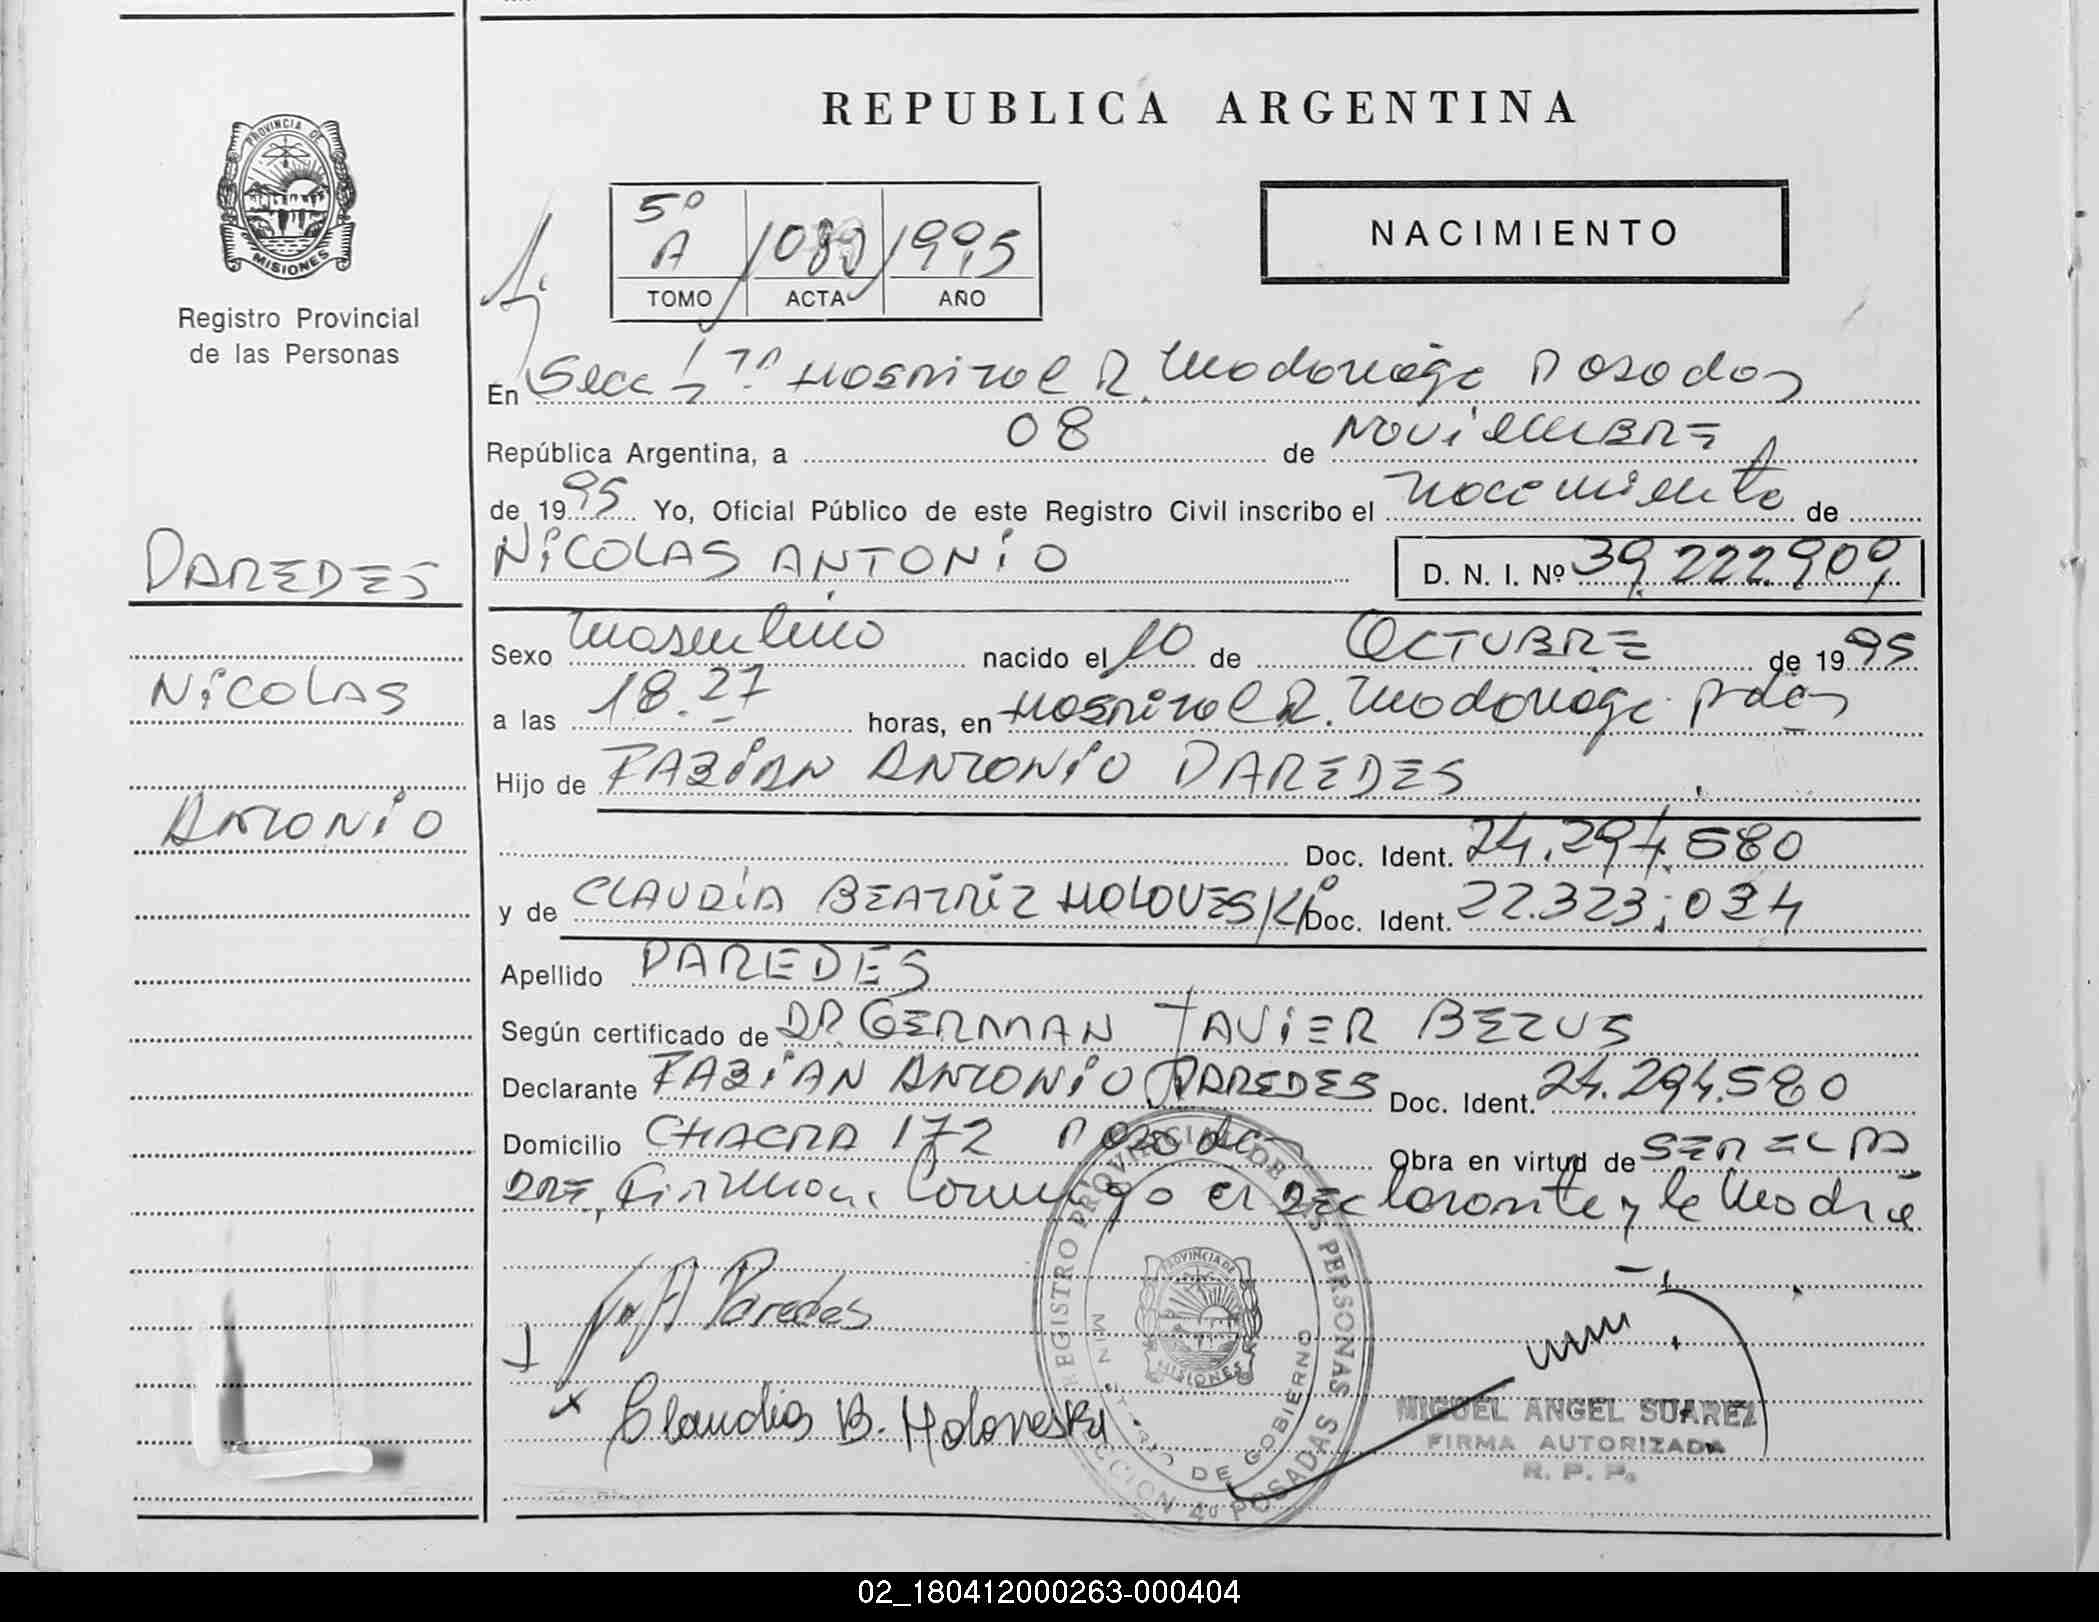 REPUBLICA ARGENTINA
PROVINCIA DE
MISIONES
Registro Provincial
de las Personas
5º
A 1995
TOMO ACTA AÑO
NACIMIENTO
En Secc Hospital R. Madariaga Posadas
República Argentina, a 08 de NOViEMBRE
de 1995 Yo, Oficial Público de este Registro Civil inscribo el nacimiento de
NiCOLAS ANTONiO D. N. I. Nº 39.222.909
PAREDES
NiCOLAS
ANTONiO
Sexo masculino nacido el 10 de OCTUBRE de 1995
a las 18.27 horas, en Hospital R. Madariaga Pdas
Hijo de FABiAN ANTONiO PAREDES
Doc. Ident. 24.294.580
y de CLAUDiA BEATRiZ HOLOVESKi Doc. Ident. 22.323.034
Apellido PAREDES
Según certificado de DR. GERMAN JAViER BEZUS
Declarante FABiAN ANTONiO PAREDES Doc. Ident. 24.294.580
Domicilio CHACRA 172 Posadas Obra en virtud de SER EL PA
DRE, Firman Conmigo el DEClarante y la Madre
Paredes
Claudia B. Holoveski
REGISTRO PROVINCIAL DE LAS PERSONAS
MINISTERIO DE GOBIERNO
PROVINCIA DE
MISIONES
SECCION 4º POSADAS
MIGUEL ANGEL SUAREZ
FIRMA AUTORIZADA
R. P. P.
02_180412000263-000404